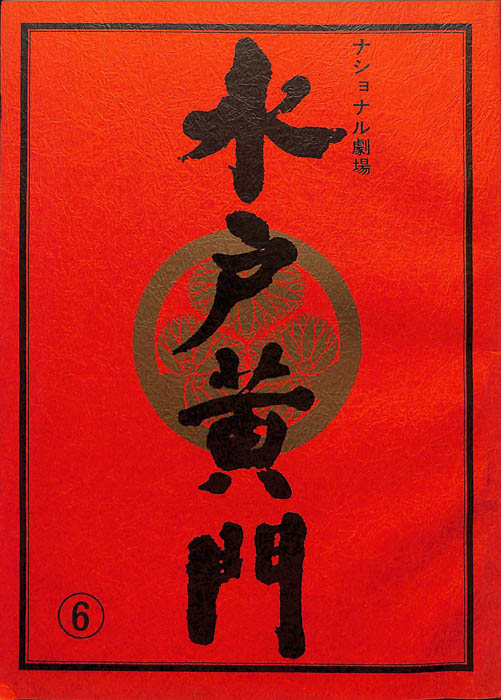 ナショナル劇場
水戸黄門
⑥